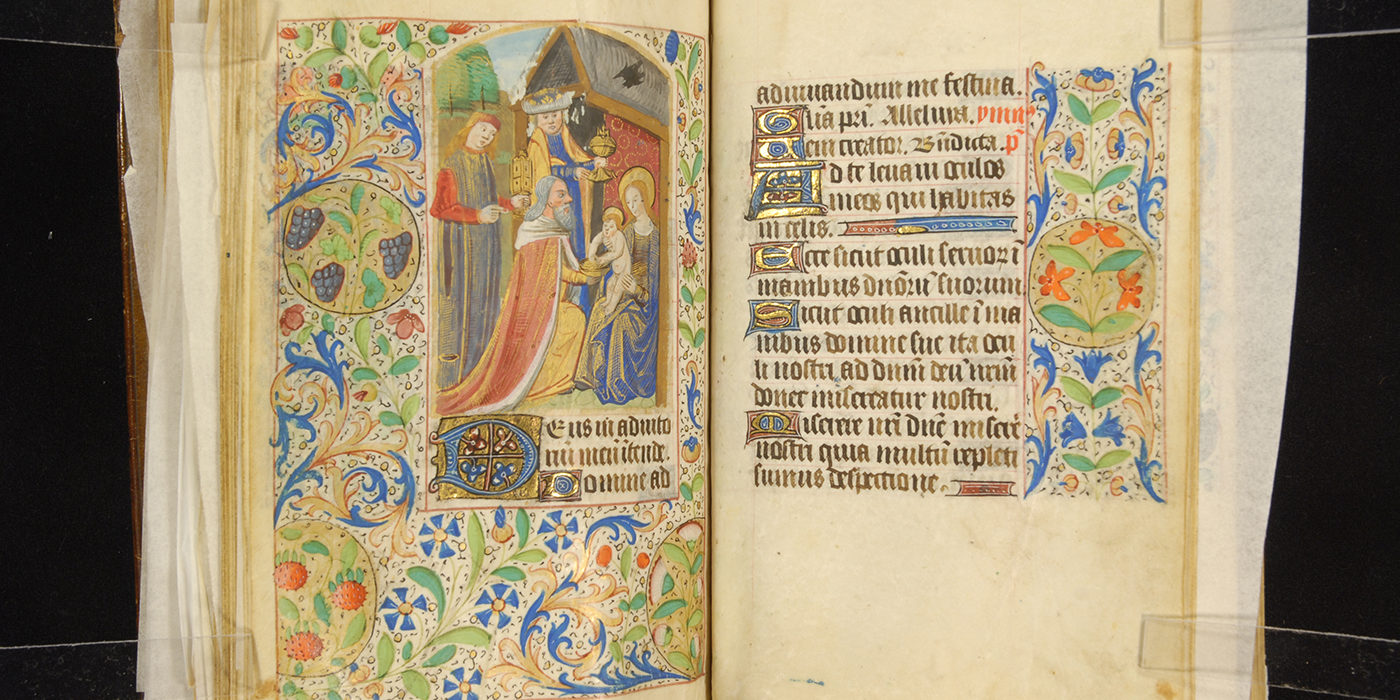 Deus in adiuto
riū meū ītende.
Domine ad
adiuuandum me festina.
Gl̄ia pri. Alleluya. ymn̄
Uem creator. Bn̄dicta. p̄
Ad te leuaui oculos
meos qui habitas
in celis.
Ecce sicut oculi seruor ī
manibus dn̄orū suorum
Sicut oculi ancille ī ma
nibus domine sue ita ocu
li nostri ad dnm̄ deū nrm̄
donec misereatur nostri.
Miserere nr̄i dn̄e miserē
nostri quia multū repleti
sumus despectione.